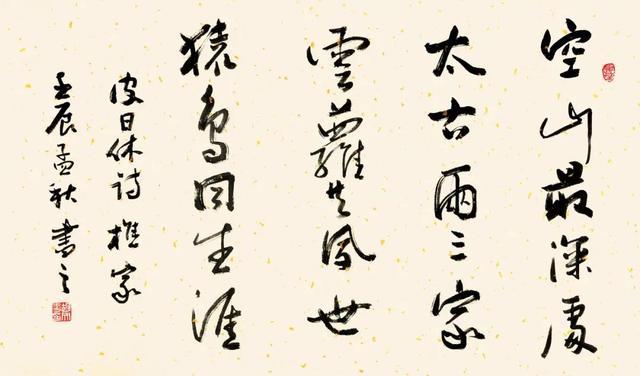 空山最深處
太古兩三家
雲蘿共夙世
猿鳥同生涯
皮日休詩樵家
壬辰孟秋書之